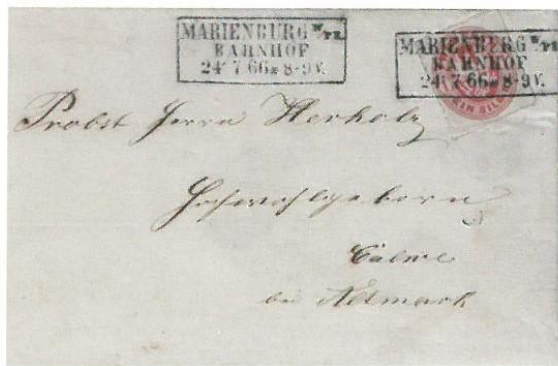 MARIENBURG W/PR.
BAHNHOF
24 7 66 * 8-9 V.
MARIENBURG W/PR.
BAHNHOF
24 7 66 * 8-9 V.
EIN SILB
Probst Herrn Herholz
Hochwohlgeborn
Calwe
bei Altmark